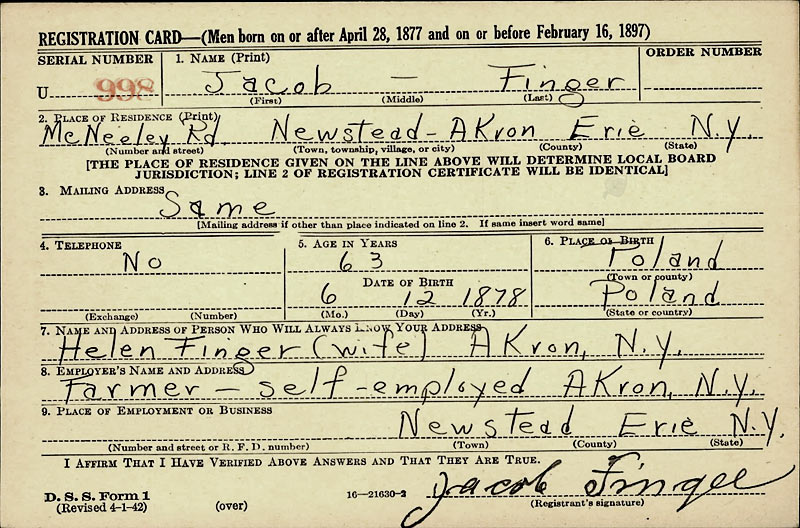 REGISTRATION CARD—(Men born on or after April 28, 1877 and on or before February 16, 1897)
SERIAL NUMBER 1. NAME (Print) ORDER NUMBER
U 998 Jacob — Finger
(First) (Middle) (Last)
2. PLACE OF RESIDENCE (Print)
McNeeley Rd. Newstead-Akron Erie N.Y.
(Number and street) (Town, township, village, or city) (County) (State)
[THE PLACE OF RESIDENCE GIVEN ON THE LINE ABOVE WILL DETERMINE LOCAL BOARD
JURISDICTION; LINE 2 OF REGISTRATION CERTIFICATE WILL BE IDENTICAL]
3. MAILING ADDRESS
Same
[Mailing address if other than place indicated on line 2. If same insert word same]
4. TELEPHONE 5. AGE IN YEARS 6. PLACE OF BIRTH
No 63 Poland
(Town or county)
DATE OF BIRTH
6 12 1878 Poland
(Exchange) (Number) (Mo.) (Day) (Yr.) (State or country)
7. NAME AND ADDRESS OF PERSON WHO WILL ALWAYS KNOW YOUR ADDRESS
Helen Finger (wife) Akron, N.Y.
8. EMPLOYER'S NAME AND ADDRESS
Farmer — self-employed Akron, N.Y.
9. PLACE OF EMPLOYMENT OR BUSINESS
Newstead Erie N.Y.
(Number and street or R. F. D. number) (Town) (County) (State)
I AFFIRM THAT I HAVE VERIFIED ABOVE ANSWERS AND THAT THEY ARE TRUE.
D. S. S. Form 1
(Revised 4-1-42) (over) 16—21630-2 Jacob Finger
(Registrant's signature)